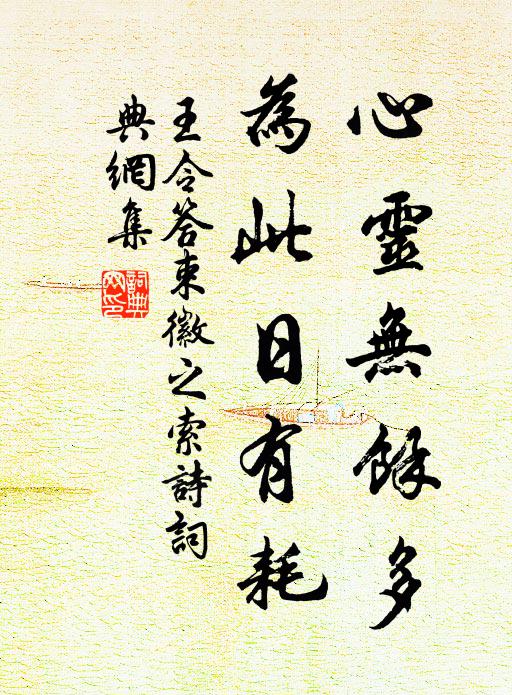 心靈無餘多
為此日有耗
王令答束徽之索詩詞
典網集
詞典
網印